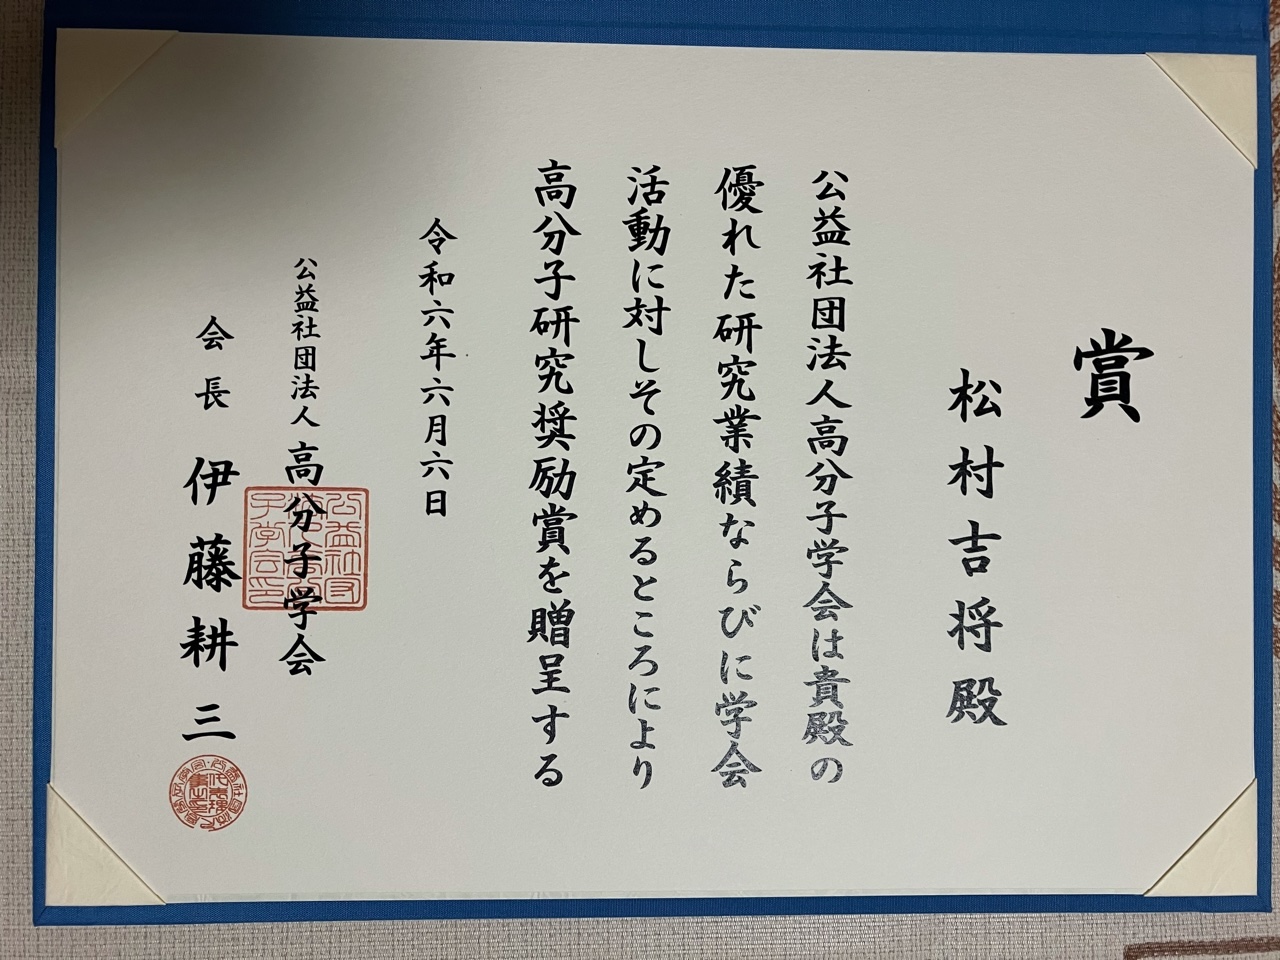 賞
松村吉将殿
公益社団法人高分子学会は貴殿の
優れた研究業績ならびに学会
活動に対しその定めるところにより
高分子研究奨励賞を贈呈する
令和六年六月六日
公益社団法人高分子学会
会長 伊藤耕三